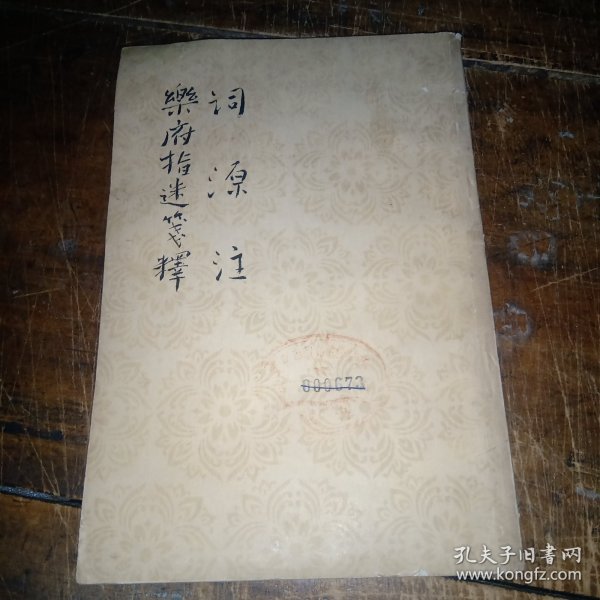 词源注
樂府指迷箋釋
000673
孔夫子旧书网
www.kongfz.com